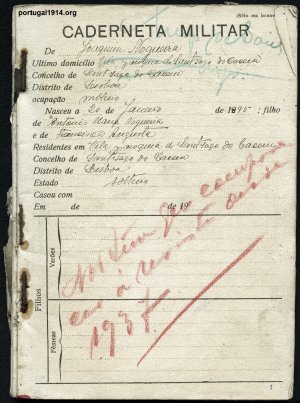 portugal1914.org
(Selo em branco
CADERNETA MILITAR
De Joaquim Nogueira
Ultimo domicilio Vila, paroquia de Santiago do Cacem
Concelho de Santiago do Cacem
Distrito de Lisboa
ocupação
Nasceu a 20 de Janeiro de 1895; filho
de António Maria Nogueira
e de Francisca Augusta
Residentes em Vila, paroquia de Santiago do Cacem
Concelho de Santiago do Cacem
Distrito de Lisboa
Estado solteiro
Casou com
Em de de 19
Filhos
Varões
Fêmeas
Não tem
á revista
1937
1